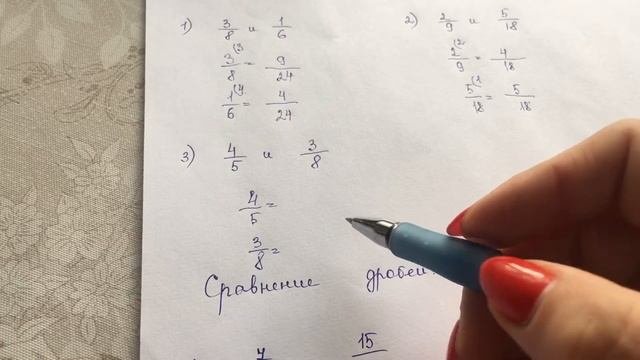 1) 3/8 и 1/6
3/8(3 = 9/24
1/6(4 = 4/24
2) 2/9 и 5/18
2/9(2 = 4/18
5/18(1 = 5/18
3) 4/5 и 3/8
4/5 =
3/8 =
Сравнение дробей.
7 15